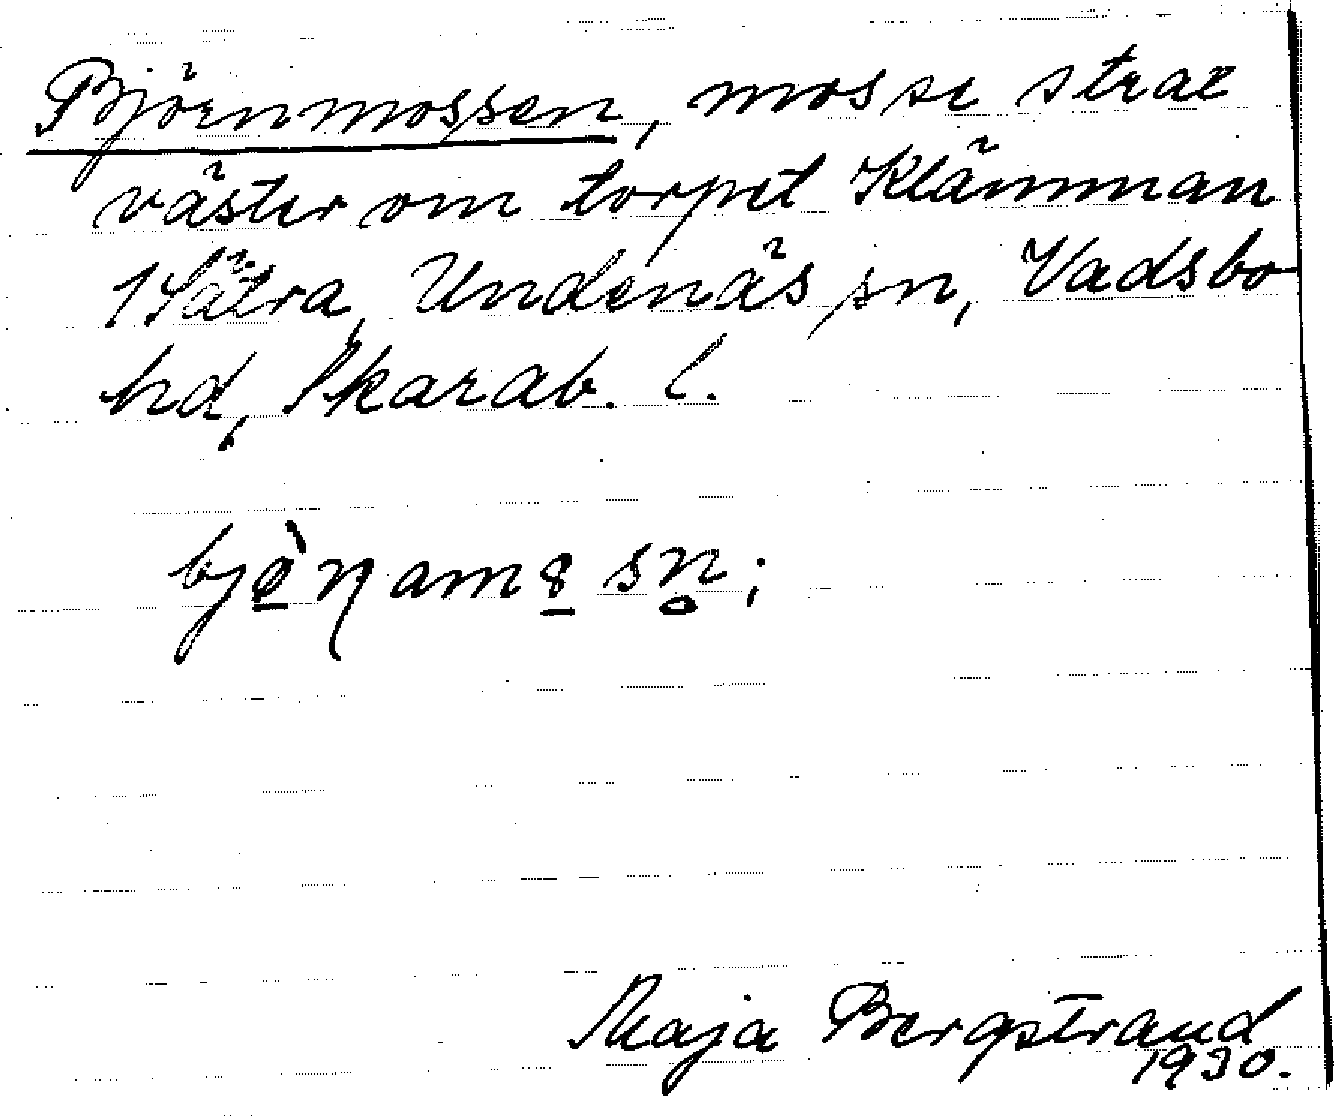 Björnmossen, mosse strax
väster om torpet Klämman
1 Sätra, Undenäs sn, Vadsbo
hd, Skarab. l.
Maja Bergstrand
1930.